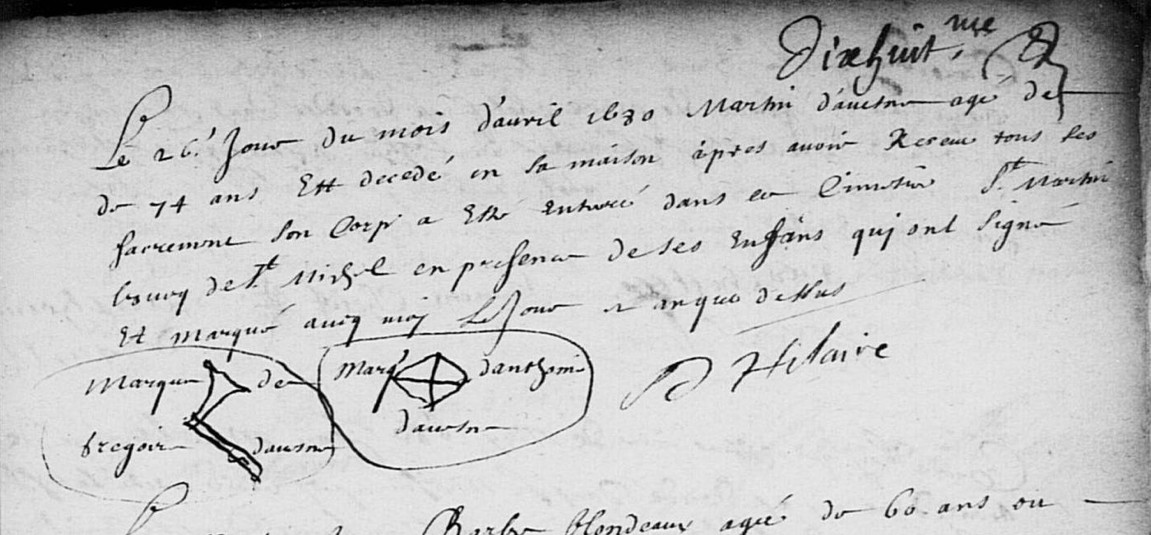 Dixhuit.me
Le 26.e Jour du mois d'auril 1680 Martin d'auesne agé de
de 74 ans Est decedé en sa maison apres auoir Receu tous les
sacrement son Corp a Esté Enterré dans le Cimetier St. Martin
bourg de St. Michel en presence de ses Enfans qui ont signé
Et marqué auecq moy Le Jour et an que dessus
Marque de
Gregoire dauesne
Marq danthoine
dauesne
Hilaire
Barbe blondeaux agée de 60 ans ou